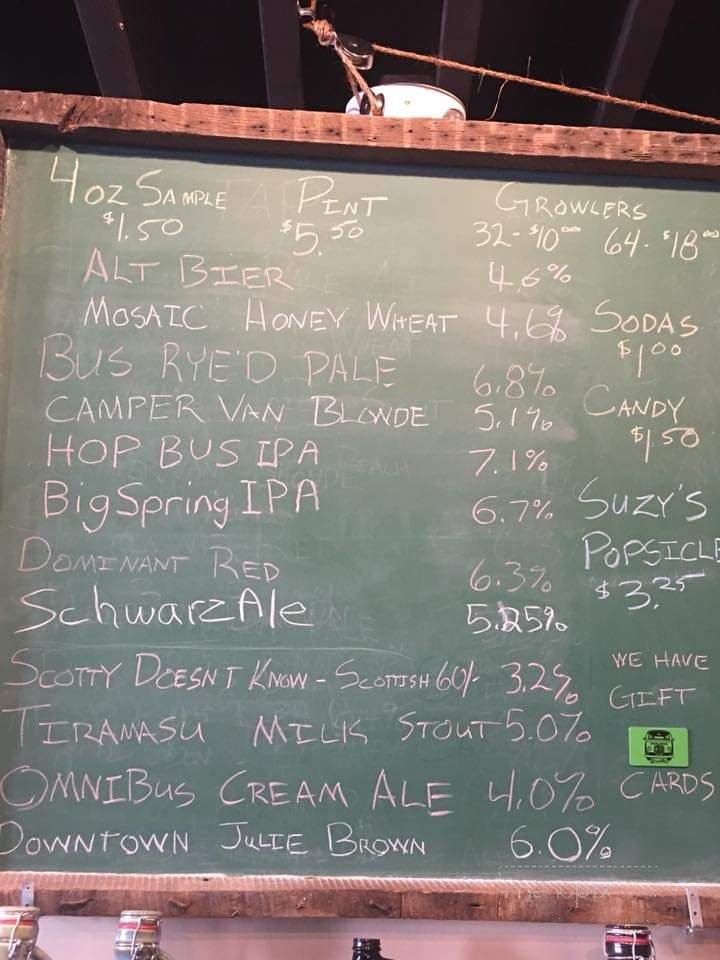 4oz SAMPLE PINT GROWLERS
$1.50 $5.50 32-$10.00 64-$18.00
ALT BIER 4.6%
MOSAIC HONEY WHEAT 4.6% SODAS
$1.00
BUS RYE'D PALE 6.8%
CAMPER VAN BLONDE 5.1% CANDY
$1.50
HOP BUS IPA 7.1%
BigSpring IPA 6.7% SUZY'S
POPSICLE
DOMINANT RED 6.3% $3.25
SchwarzAle 5.25%
SCOTTY DOESN'T KNOW - SCOTTISH 60/- 3.2% WE HAVE
GIFT
TIRAMASU MILK STOUT 5.0%
OMNIBUS CREAM ALE 4.0% CARDS
DOWNTOWN JULIE BROWN 6.0%